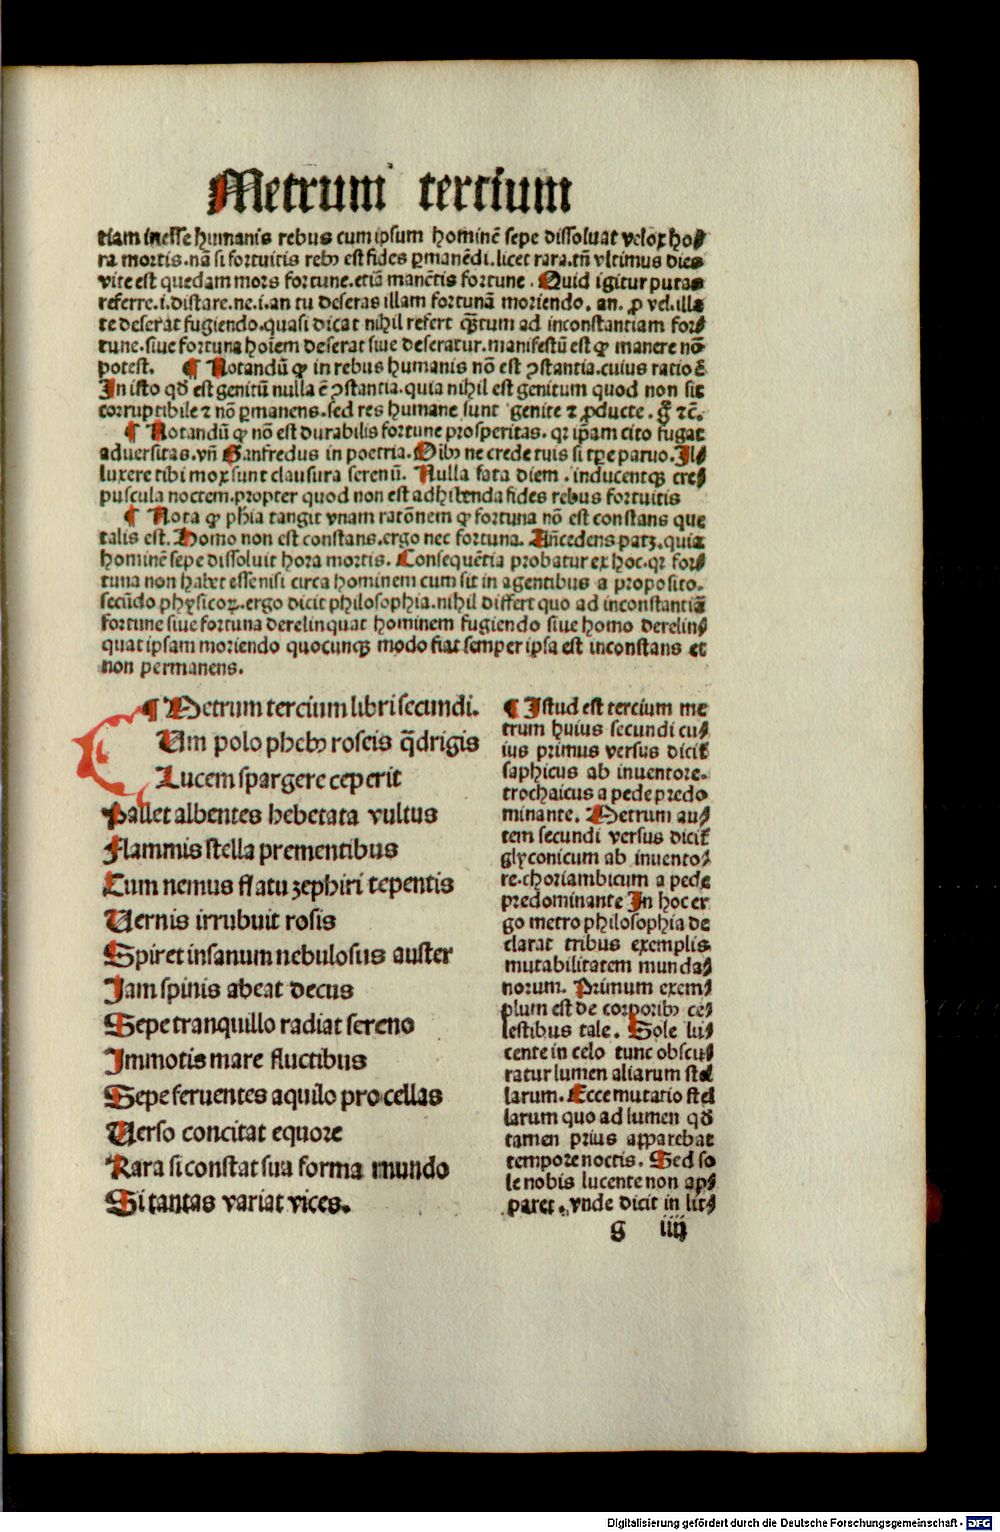 Metrum tercium
tiam inesse humanis rebus cum ipsum hominē sepe dissoluat velox ho⸗
ra mortis.nā si fortuitis rebꝰ est fides ꝑmanēdi.licet rara.tñ vltimus dies
vite est quedam mors fortune.etiā manētis fortune . Quid igitur putas
referre.i.distare.ne.i.an tu deseras illam fortunā moriendo. an. ꝓ vel.illa
te deserat fugiendo.quasi dicat nihil refert q̄ꝫtum ad inconstantiam for⸗
tune.siue fortuna hoīem deserat siue deseratur.manifestū est ꝙ manere nō
potest. ¶ Notandū ꝙ in rebus humanis nō est ꝯstantia.cuius ratio ē
In isto qđ est genitū nulla ē ꝯstantia.quia nihil est genitum quod non sit
corruptibile ⁊ nō ꝑmanens.sed res humane sunt genite ⁊ ꝓducte . g̊ ⁊c̄.
¶ Notandū ꝙ nō est durabilis fortune prosperitas. qr ip̄am cito fugat
aduersitas.vñ Ganfredus in poetria. Dibꝰ ne crede tuis si tꝑe paruo. Il⸗
luxere tibi mox sunt clausura serenū. Nulla fata diem . inducentqꝫ cre⸗
puscula noctem.propter quod non est adhibenda fides rebus fortuitis
¶ Nota ꝙ phia tangit vnam ratōnem ꝙ fortuna nō est constans que
talis est. Homo non est constans.ergo nec fortuna. Añcedens patꝫ.quia
hominē sepe dissoluit hora mortis. Consequētia probatur ex hoc.qr for⸗
tuna non habet esse nisi circa hominem cum sit in agentibus a proposito.
secūdo physicoꝝ.ergo dicit philosophia.nihil differt quo ad inconstantiā
fortune siue fortuna derelinquat hominem fugiendo siue homo derelin⸗
quat ipsam moriendo quocunqꝫ modo fiat semper ipsa est inconstans et
non permanens.
¶ Metrum tercium libri secundi.
Cum polo phebꝰ roseis q̄drigis
Lucem spargere ceperit
Pallet albentes hebetata vultus
Flammis stella prementibus
Cum nemus flatu zephiri tepentis
Uernis irrubuit rosis
Spiret insanum nebulosus auster
Jam spinis abeat decus
Sepe tranquillo radiat sereno
Immotis mare fluctibus
Sepe feruentes aquilo procellas
Uerso concitat equore
Rara si constat sua forma mundo
Si tantas variat vices.
¶ Istud est tercium me
trum huius secundi cu⸗
ius primus versus dicit̉
saphicus ab inuentore.
trochaicus a pede predo
minante. Metrum au⸗
tem secundi versus dicit̉
glyconicum ab inuento⸗
re.choriambicum a pede
predominante In hoc er
go metro philosophia de
clarat tribus exemplis
mutabilitatem munda⸗
norum. Primum exem⸗
plum est de corporibꝰ ce⸗
lestibus tale. Sole lu⸗
cente in celo tunc obscu⸗
ratur lumen aliarum stel
larum. Ecce mutatio stel
larum quo ad lumen qđ
tamen prius apparebat
tempore noctis. Sed so
le nobis lucente non ap⸗
paret . vnde dicit in lit⸗
g iiij
Digitalisierung gefördert durch die Deutsche Forschungsgemeinschaft - DFG